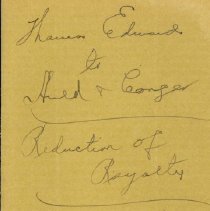 Thomas Edwards
to
Auld & Conger
Reduction of
Royalty